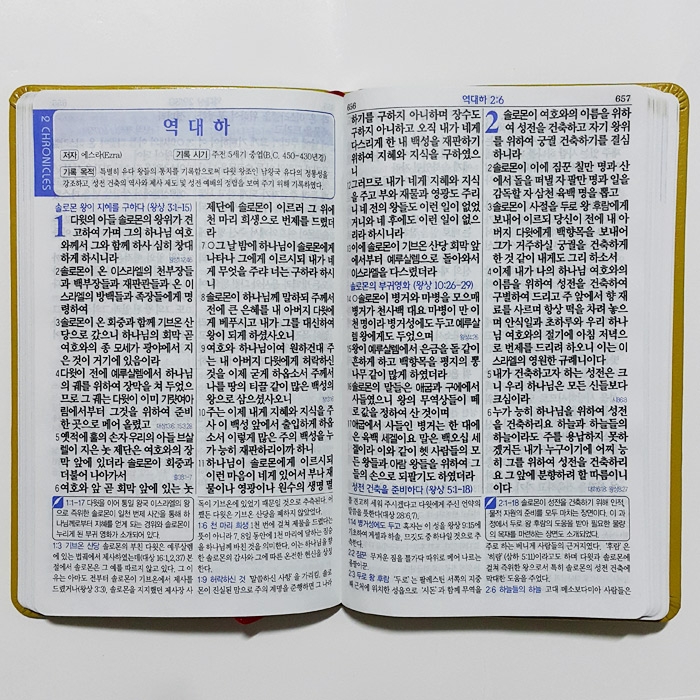 2 CHRONICLES
역대하
저자 에스라(Ezra) 기록 시기 주전 5세기 중엽(B.C. 450~430년경)
기록 목적 특별히 유다 왕들의 통치를 기록함으로써 다윗 왕조인 남왕국 유다의 정통성을
강조하고, 성전 건축의 역사와 제사 제도 및 성전 예배의 정립을 보여 주기 위해 기록하였다.
솔로몬 왕이 지혜를 구하다 (왕상 3:1-15)
1 다윗의 아들 솔로몬의 왕위가 견
고하여 가며 그의 하나님 여호
와께서 그와 함께 하사 심히 창대
하게 하시니라
2 솔로몬이 온 이스라엘의 천부장들
과 백부장들과 재판관들과 온 이
스라엘의 방백들과 족장들에게 명
령하여
3 솔로몬이 온 회중과 함께 기브온 산
당으로 갔으니 하나님의 회막 곧
여호와의 종 모세가 광야에서 지
은 것이 거기에 있음이라
4 다윗이 전에 예루살렘에서 하나님
의 궤를 위하여 장막을 쳐 두었으
므로 그 궤는 다윗이 이미 기럇여아
림에서부터 그것을 위하여 준비
한 곳으로 메어 올렸고
5 옛적에 훌의 손자 우리의 아들 브살
렐이 지은 놋 제단은 여호와의 장
막 앞에 있더라 솔로몬이 회중과
더불어 나아가서
6 여호와 앞 곧 회막 앞에 있는 놋
제단에 솔로몬이 이르러 그 위에
천 마리 희생으로 번제를 드렸더
라
7 ○그 날 밤에 하나님이 솔로몬에게
나타나 그에게 이르시되 내가 네
게 무엇을 주랴 너는 구하라 하시
니
8 솔로몬이 하나님께 말하되 주께서
전에 큰 은혜를 내 아버지 다윗에
게 베푸시고 내가 그를 대신하여
왕이 되게 하셨사오니
9 여호와 하나님이여 원하건대 주
는 내 아버지 다윗에게 허락하신
것을 이제 굳게 하옵소서 주께서
나를 땅의 티끌 같이 많은 백성의
왕으로 삼으셨사오니
10 주는 이제 내게 지혜와 지식을 주
사 이 백성 앞에서 출입하게 하옵
소서 이렇게 많은 주의 백성을 누
가 능히 재판하리이까 하니
11 하나님이 솔로몬에게 이르시되
이런 마음이 네게 있어서 부나 재
물이나 영광이나 원수의 생명 멸
1:1-17 다윗을 이어 통일 왕국 이스라엘의 왕
으로 즉위한 솔로몬이 일천 번제 시간을 통해 하
나님께로부터 지혜를 얻게 되는 경위와 솔로몬이
누리게 된 부귀 영화가 소개되어 있다.
1:3 기브온 산당
1:6 천 마리 희생
1:9 허락하신 것
656 역대하 2:6 657
하기를 구하지 아니하며 장수도
구하지 아니하고 오직 내가 네게
다스리게 한 내 백성을 재판하기
위하여 지혜와 지식을 구하였으
니
12 그러므로 내가 네게 지혜와 지식
을 주고 부와 재물과 영광도 주리
니 네 전의 왕들도 이런 일이 없었
거니와 네 후에도 이런 일이 없으
리라 하시니라
13 이에 솔로몬이 기브온 산당 회막 앞
에서부터 예루살렘으로 돌아와서
이스라엘을 다스렸더라
솔로몬의 부귀영화 (왕상 10:26-29)
14 ○솔로몬이 병거와 마병을 모으매
병거가 천사백 대요 마병이 만 이
천 명이라 병거성에도 두고 예루살
렘 왕에게도 두었으며
15 왕이 예루살렘에서 은금을 돌 같이
흔하게 하고 백향목을 평지의 뽕
나무 같이 많게 하였더라
16 솔로몬의 말들은 애굽과 구에에서
사들였으니 왕의 무역상들이 떼
로 값을 정하여 산 것이며
17 애굽에서 사들인 병거는 한 대에
은 육백 세겔이요 말은 백오십 세
겔이라 이와 같이 헷 사람들의 모
든 왕들과 아람 왕들을 위하여 그
들의 손으로 되팔기도 하였더라
성전 건축을 준비하다 (왕상 5:1-18)
1:14 병거성에도 두고
2:2 짐꾼
2:3 두로 왕 후람에게
2 솔로몬이 여호와의 이름을 위하
여 성전을 건축하고 자기 왕위
를 위하여 궁궐 건축하기를 결심
하니라
2 솔로몬이 이에 짐꾼 칠만 명과 산
에서 돌을 떠낼 자 팔만 명과 일을
감독할 자 삼천 육백 명을 뽑고
3 솔로몬이 사절을 두로 왕 후람에게
보내어 이르되 당신이 전에 내 아
버지 다윗에게 백향목을 보내어
그가 거주하실 궁궐을 건축하게
한 것 같이 내게도 그리 하소서
4 이제 내가 나의 하나님 여호와의
이름을 위하여 성전을 건축하여
구별하여 드리고 주 앞에서 향 재
료를 사르며 항상 떡을 차려 놓으
며 안식일과 초하루와 우리 하나
님 여호와의 절기에 아침 저녁으
로 번제를 드리려 하오니 이는 이
스라엘의 영원한 규례니이다
5 내가 건축하고자 하는 성전은 크
니 우리 하나님은 모든 신들보다
크심이라
6 누가 능히 하나님을 위하여 성전
을 건축하리요 하늘과 하늘들의
하늘이라도 주를 용납하지 못하
겠거든 내가 누구이기에 어찌 능
히 그를 위하여 성전을 건축하리
요 그 앞에 분향하려 할 따름이니
이다
2:1-18 솔로몬이 성전을 건축하기 위해 인적,
물적 자원의 준비를 모두 마치는 장면이다. 이 과
정에서 두로 왕 후람의 도움을 받아 필요한 물량
의 목재를 마련하는 장면도 소개되었다.
2:6 하늘들의 하늘 고대 메소보다미아 사람들은